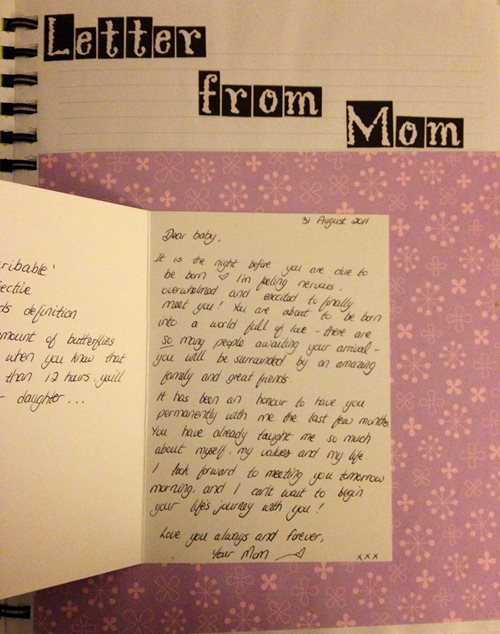 Letter
from
Mom
cribable'
jective
ds definition
amount of butterflies
when you know that
than 12 hours you'll
r daughter...
31 August 2011
Dear baby,
It is the night before you are due to
be born ♡ I'm feeling nervous,
overwhelmed and excited to finally
meet you! You are about to be born
into a world full of love - there are
so many people awaiting your arrival -
you will be surrounded by an amazing
family and great friends.
It has been an honour to have you
permanently with me the last few months.
You have already taught me so much
about myself, my values and my life.
I look forward to meeting you tomorrow
morning, and I can't wait to begin
your life's journey with you!
Love you always and forever,
Your Mom ♡
xxx